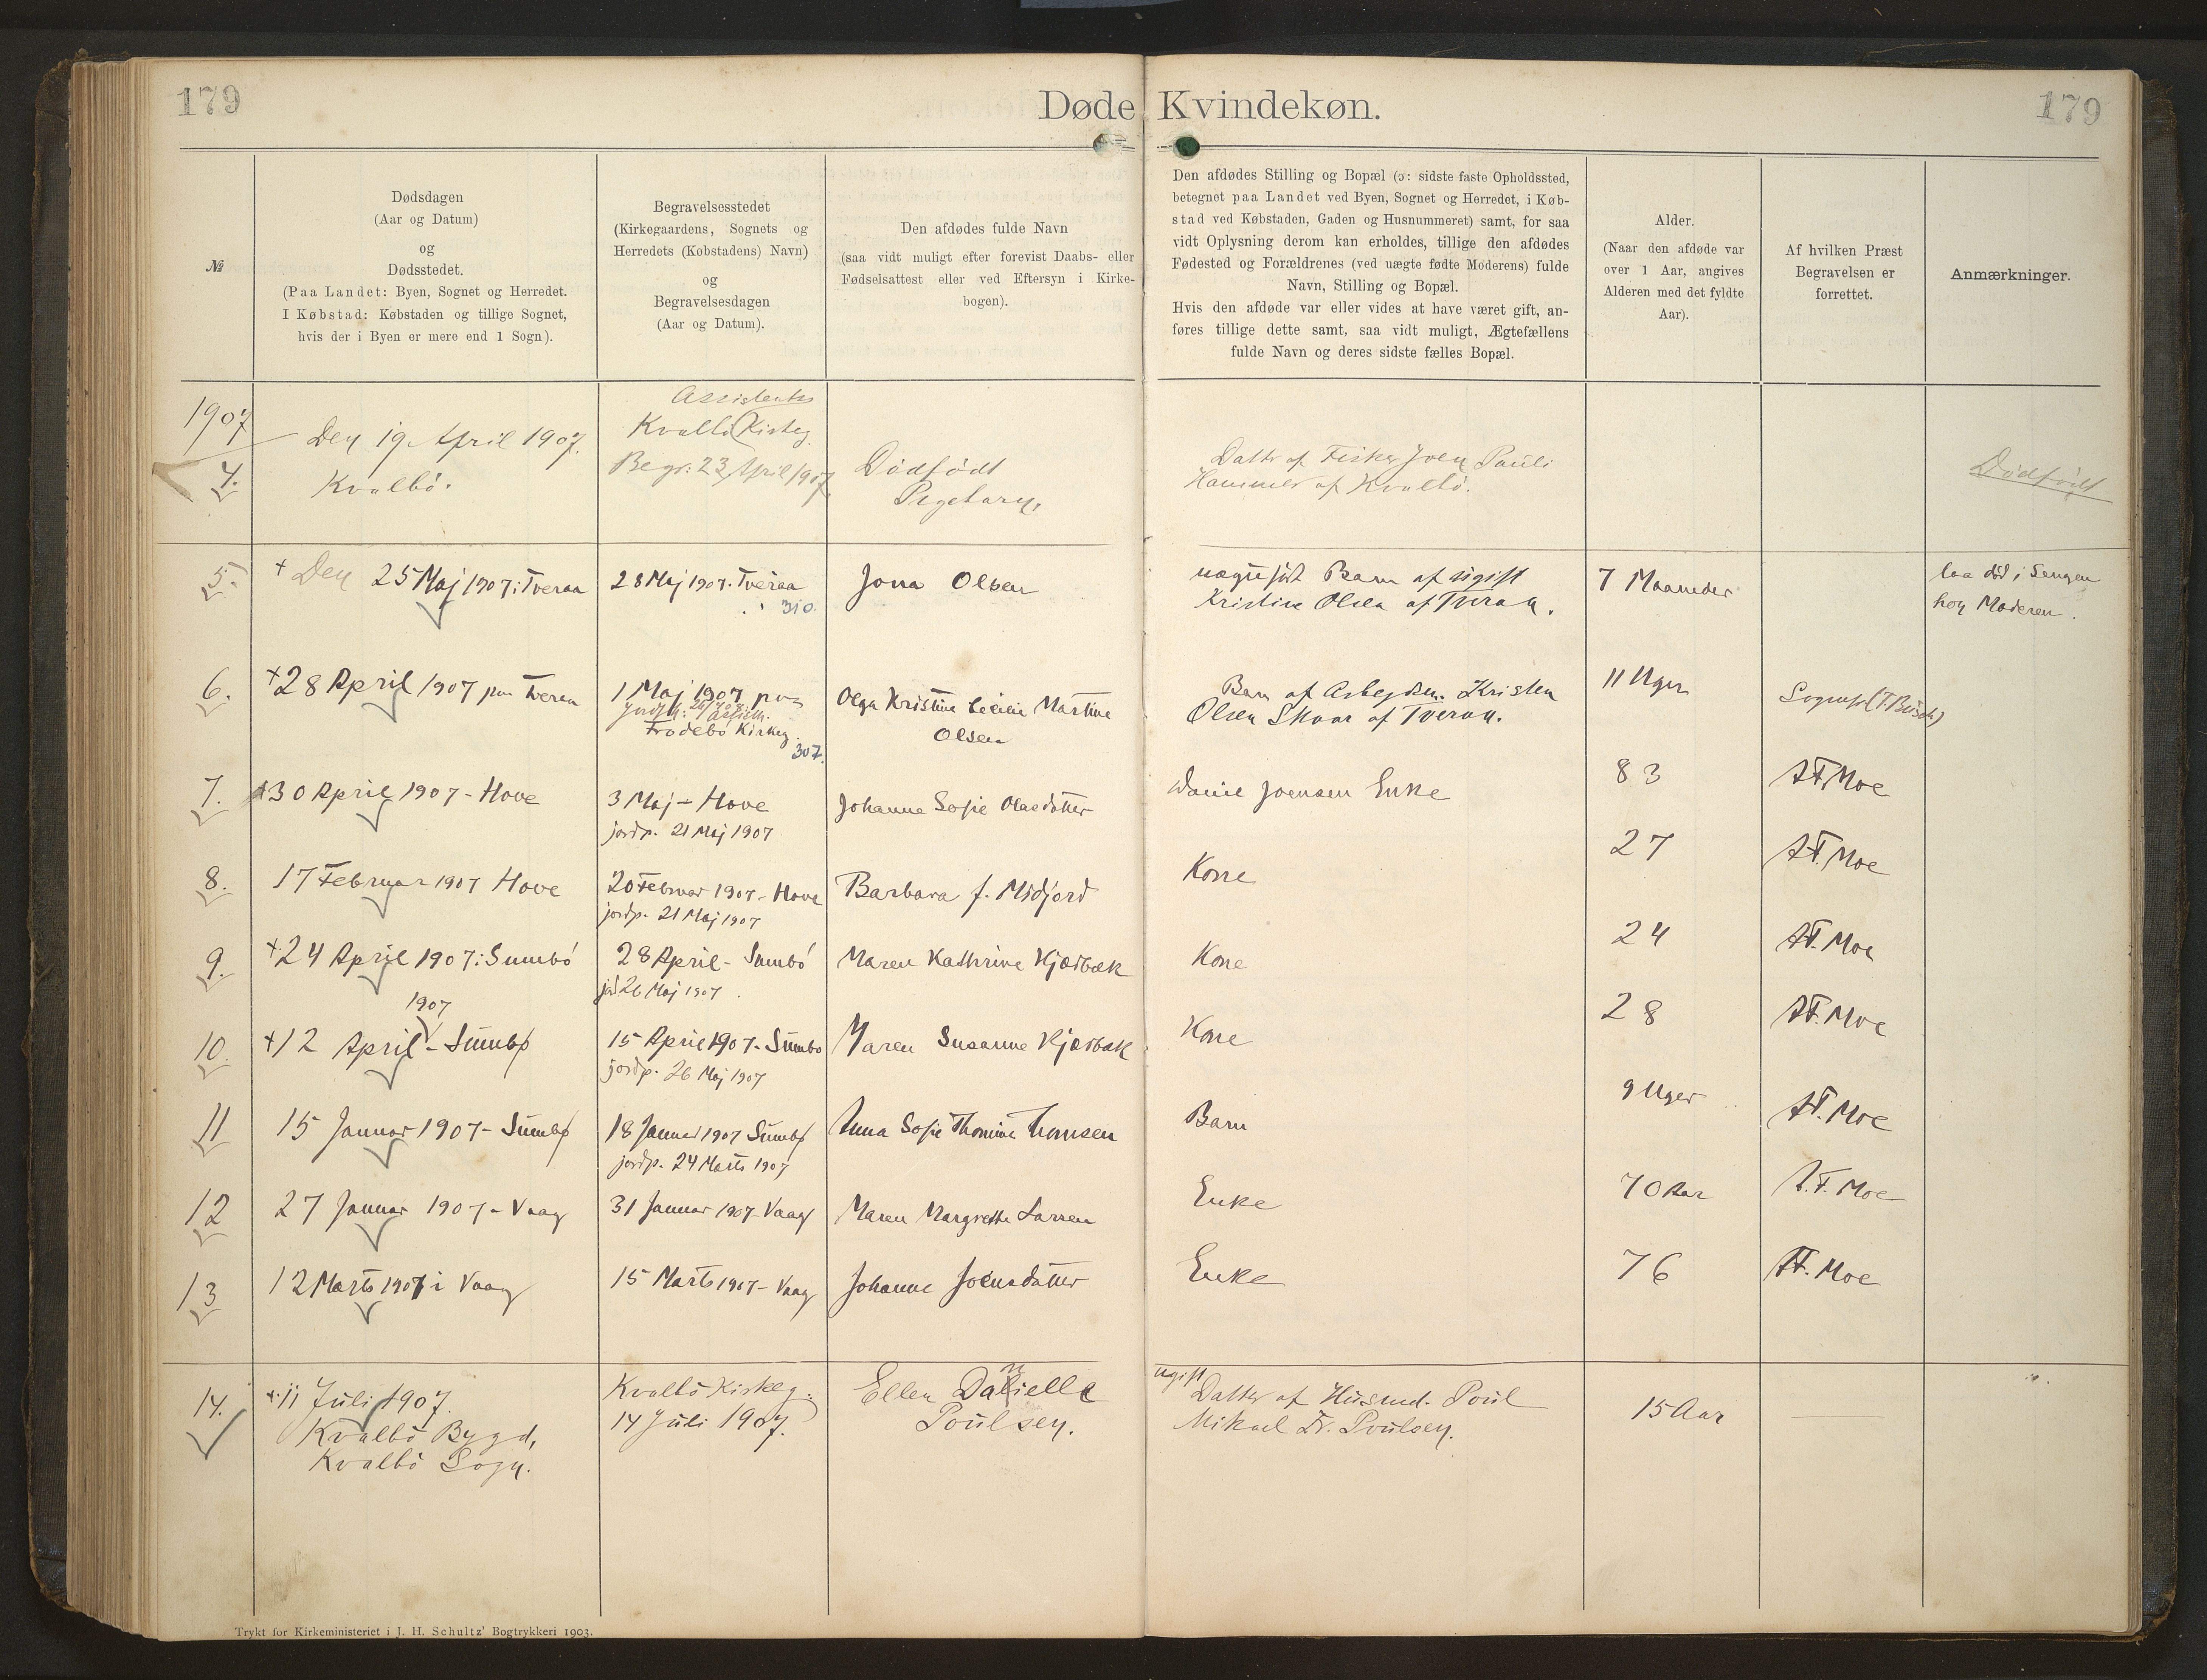 179
Døde Kvindekøn.
179
№
Dødsdagen
(Aar og Datum)
og
Dødsstedet.
(Paa Landet: Byen, Sognet og Herredet.
I Købstad: Købstaden og tillige Sognet,
hvis der i Byen er mere end 1 Sogn).
Begravelsesstedet
(Kirkegaardens, Sognets og
Herredets (Købstadens) Navn)
og
Begravelsesdagen
(Aar og Datum).
Den afdødes fulde Navn
(saa vidt muligt efter forevist Daabs- eller
Fødselsattest eller ved Eftersyn i Kirke-
bogen).
Den afdødes Stilling og Bopæl (ɔ: sidste faste Opholdssted,
betegnet paa Landet ved Byen, Sognet og Herredet, i Køb-
stad ved Købstaden, Gaden og Husnummeret) samt, for saa
vidt Oplysning derom kan erholdes, tillige den afdødes
Fødested og Forældrenes (ved uægte fødte Moderens) fulde
Navn, Stilling og Bopæl.
Hvis den afdøde var eller vides at have været gift, an-
føres tillige dette samt, saa vidt muligt, Ægtefællens
fulde Navn og deres sidste fælles Bopæl.
Alder.
(Naar den afdøde var
over 1 Aar, angives
Alderen med det fyldte
Aar).
Af hvilken Præst
Begravelsen er
forrettet.
Anmærkninger.
1907
4.
Den 19. April 1907.
Kvalbö.
Assistents
Kvalbö Kirkeg.
Begr: 23 April 1907.
Dödfödt
Pigebarn.
Datter af Fisker Joen Pauli
Hammer af Kvalbö.
Dödfödt
5.
+ Den 25 Maj 1907 i Tveraa
28 Maj 1907. Tveraa
310.
Jona Olsen
uægte födt Barn af ugift
Kristine Olsen af Tveraa.
7 Maaneder
laa död i Sengen
hos Moderen.
6.
+28 April 1907 paa Tveraa
1 Maj 1907 paa
Frodebö Kirkeg.
307.
Olga Kristine Cecilie Martine
Olsen
Barn af Arbejdsm. Kristen
Olsen Skaar af Tveraa.
11 Uger
Sognepr. (T. Busch)
7.
+30 April 1907 - Hove
3 Maj - Hove
jordp. 21 Maj 1907
Johanne Sofie Olasdatter
Daniel Joensen Enke
83
A.F. Moe
8.
17 Februar 1907 Hove
20 Februar 1907 - Hove
jordp. 21 Maj 1907
Barbara f. Midjord
Kone
27
A.F. Moe
9.
+24 April 1907 i Sumbö
28 April - Sumbö
jord. 26 Maj 1907
Maren Kathrine Kjærbæk
Kone
24
A.F. Moe
10.
1907
+12 April - Sumbø
15 April 1907 - Sumbo
jordp. 26 Maj 1907
Maren Susanne Kjærbæk
Kone
28
A.F. Moe
11
15 Januar 1907 - Sumbø
18 Januar 1907 Sumbø
jordp. 24 Marts 1907
Anna Sofie Thomine Thomsen
Barn
9 Uger
A.F. Moe
12
27 Januar 1907 - Vaag
31 Januar 1907 Vaag
Maren Margrethe Larsen
Enke
70 Aar
A.F. Moe
13
12 Marts 1907 i Vaag
15 Marts 1907 - Vaag
Johanne Joensdatter
Enke
76
A.F. Moe
14.
+11 Juli 1907.
Kvalbö Bygd,
Kvalbö Sogn.
Kvalbö Kirkeg.
14 Juli 1907.
Ellen Danielle
Poulsen.
ugift
Datter af Husmd. Poul
Mikael Fr. Poulsen.
15 Aar
Trykt for Kirkeministeriet i J. H. Schultz' Bogtrykkeri 1903.